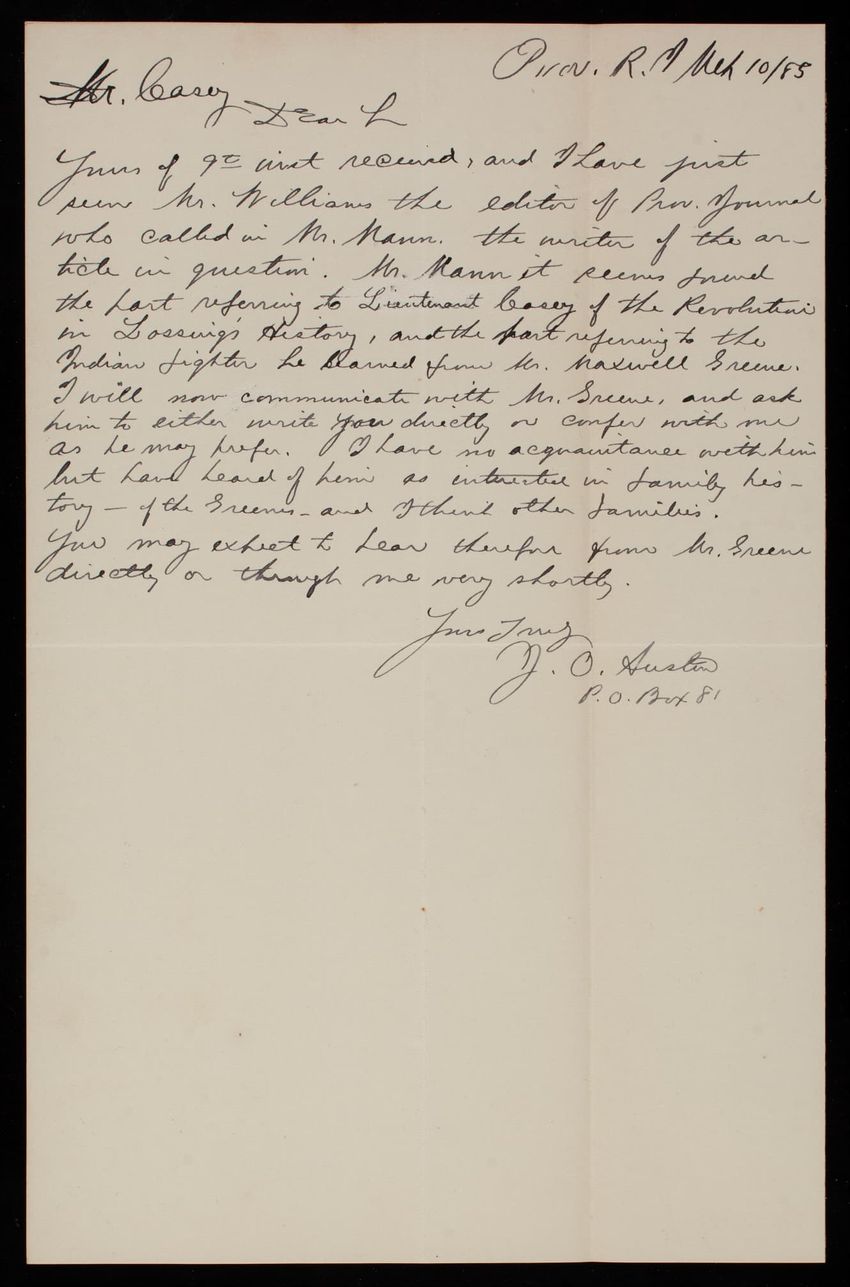 Prov. R. I Mch 10/85
Mr. Casey
Dear Sr
Yours of 9th inst received, and I have just
seen Mr. Williams the editor of Prov. Journal
who called in Mr. Mann. the writer of the ar-
ticle in question. Mr. Mann it seems found
the part referring to Lieutenant Casey of the Revolution
in Lossing's History, and the part referring to the
Indian fighter he learned from Mr. Maxwell Greene.
I will now communicate with Mr. Greene, and ask
him to either write you directly or confer with me
as he may prefer. I have no acquaintance with him
but have heard of him as interested in family his-
tory - of the Greenes - and I think other families.
You may expect to hear therefore from Mr. Greene
directly or through me very shortly.
Yours Truly
J. O. Austin
P.O. Box 81